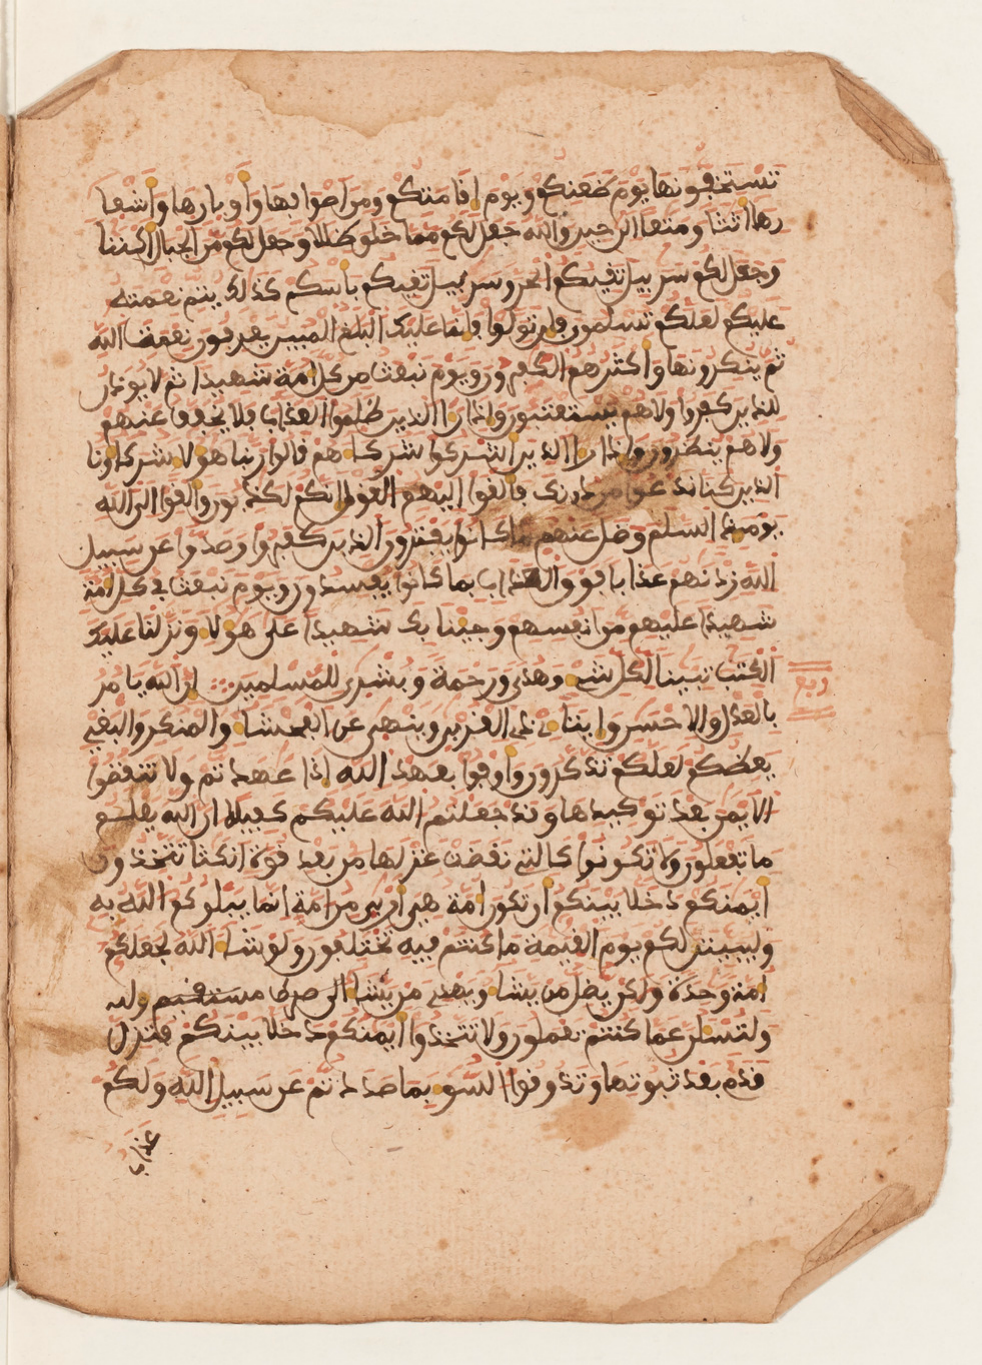 تستخفونها يوم ظعنكم ويوم إقامتكم ومن اصوافها وأوبارها وأشعا
رها أثثا ومتعا الى حين والله جعل لكم مما خلق ظللا وجعل لكم من الجبال اكننا
وجعل لكم سربيل تقيكم الحر وسربيل تقيكم بأسكم كذلك يتم نعمته
عليكم لعلكم تسلمون فإن تولوا فإنما عليك البلغ المبين يعرفون نعمت الله
ثم ينكرونها وأكثرهم الكفرون ويوم نبعث من كل أمة شهيدا ثم لا يوذن
للذين كفروا ولا هم يستعتبون وإذا رءا الذين ظلموا العذاب فلا يخفف عنهم
ولا هم ينظرون وإذا رءا الذين أشركوا شركاءهم قالوا ربنا هؤلاء شركاؤنا
الذين كنا ندعوا من دونك فألقوا اليهم القول إنكم لكذبون وألقوا الى الله
يومئذ السلم وضل عنهم ما كانوا يفترون الذين كفروا وصدوا عن سبيل
الله زدنهم عذابا فوق العذاب بما كانوا يفسدون ويوم نبعث في كل أمة
شهيدا عليهم من انفسهم وجئنا بك شهيدا على هؤلاء ونزلنا عليك
الكتب تبينا لكل شيء وهدى ورحمة وبشرى للمسلمين إن الله يامر
ربع
بالعدل والاحسن وإيتاء ذي القربى وينهى عن الفحشاء والمنكر والبغي
يعظكم لعلكم تذكرون وأوفوا بعهد الله إذا عهدتم ولا تنقضوا
الايمن بعد توكيدها وقد جعلتم الله عليكم كفيلا إن الله يعلم
ما تفعلون ولا تكونوا كالتي نقضت غزلها من بعد قوة انكثا تتخذون
أيمنكم دخلا بينكم أن تكون أمة هي أربى من امة إنما يبلوكم الله به
وليبينن لكم يوم القيمة ما كنتم فيه تختلفون ولو شاء الله لجعلكم
أمة وحدة ولكن يضل من يشاء ويهدي من يشاء الى صرط مستقيم
ولتسئلن عما كنتم تعملون ولا تتخذوا أيمنكم دخلا بينكم فتزل
قدم بعد ثبوتها وتذوقوا السوء بما صددتم عن سبيل الله ولكم
عذاب